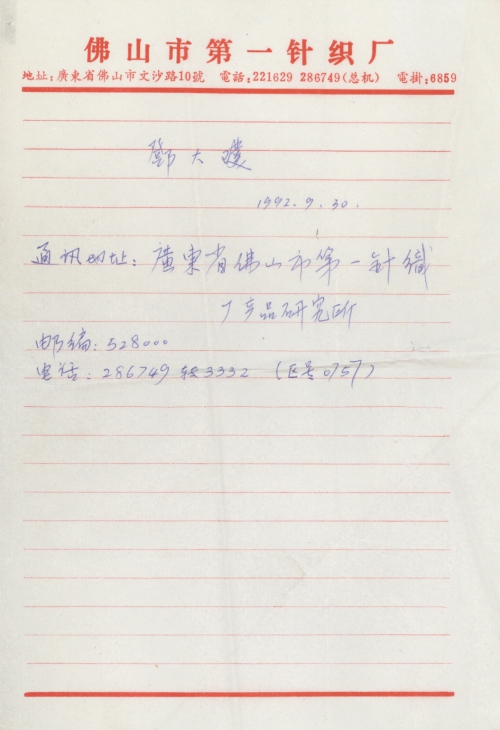 佛山市第一针织厂
地址:廣東省佛山市文沙路10號 電話:221629 286749(总机) 電掛:6859
鄧大
1992.9.30.
通讯地址:廣東省佛山市第一針織
厂产品研究所
邮编:528000
电话:286749转3332 (区号0757)